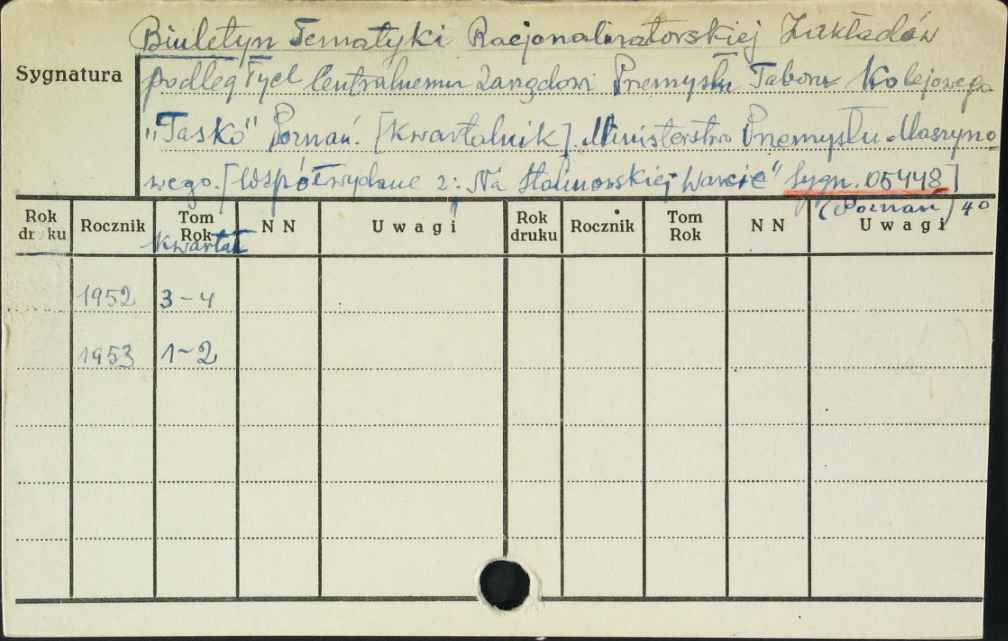 Biuletyn Tematyki Racjonalizatorskiej Zakładów
Sygnatura
podległych Centralnemu Zarządowi Przemysłu Taboru Kolejowego
"Tasko" Poznań. [Kwartalnik]. Ministerstwo Przemysłu Maszyno
wego. [Współwydane z: "Na Stalinowskiej Warcie" Sygn. 05448]
(Poznań) 40
Rok druku Rocznik Tom Rok NN Uwagi Rok druku Rocznik Tom Rok NN Uwagi
Kwartał
1952 3-4
1953 1-2